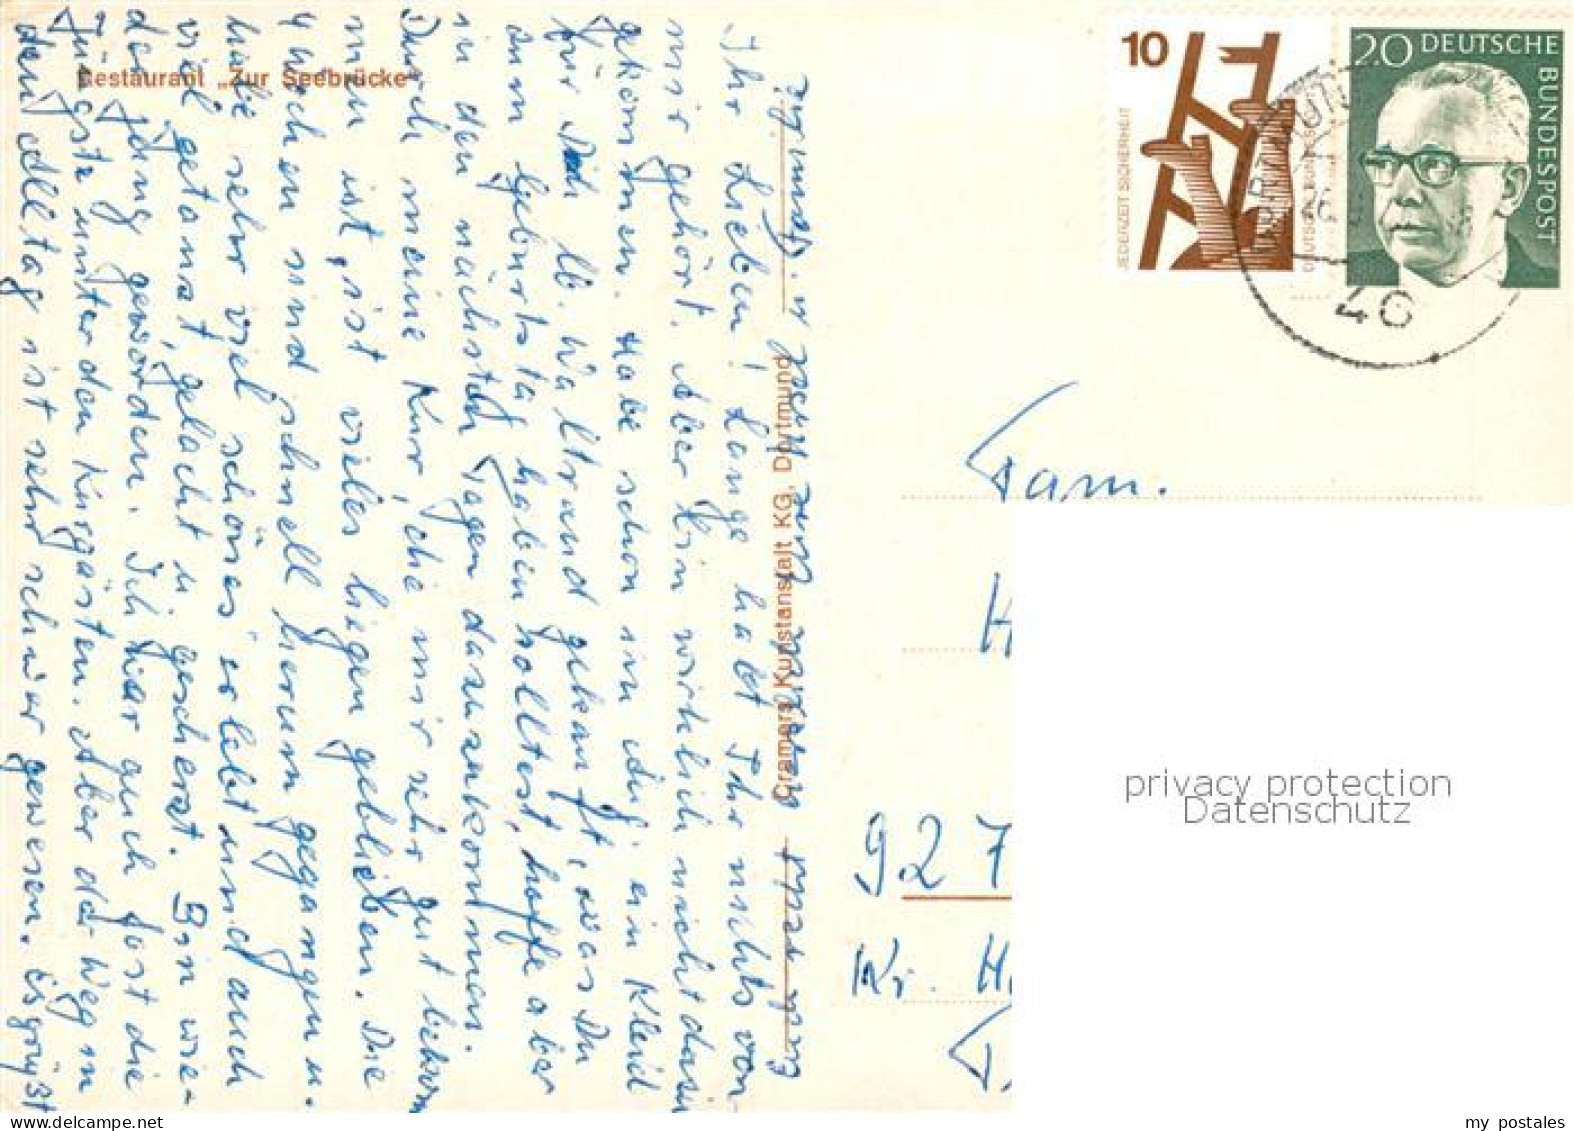 Restaurant „Zur Seebrücke“
Ihr Lieben! Lange habt Ihr nichts von
mir gehört. Aber bin wirklich nicht dazu
gekommen. Habe schon im Juli ein Kleid
für Dich lb. Waltraud gekauft, was Du
zum Geburtstag haben solltest, hoffe aber
in den nächsten Tagen dazuzukommen.
Durch meine Kur, die mir sehr gut bekom
men ist, ist vieles liegen geblieben. Die
4 Wochen sind schnell herum gegangen u.
habe sehr viel schönes erlebt und auch
viel getanzt, gelacht u. gescherzt. Bin wie-
der jung geworden. Ich war auch fast die
Jüngste unter den Kurgästen. Aber der Weg in
den Alltag ist sehr schwer gewesen. Es grüßt
Euch
Cramers Kunstanstalt KG, Dortmund
10
JEDERZEIT SICHERHEIT
20 DEUTSCHE
BUNDESPOST
40
Fam.
H
927
Kr. H
privacy protection
Datenschutz
my postales